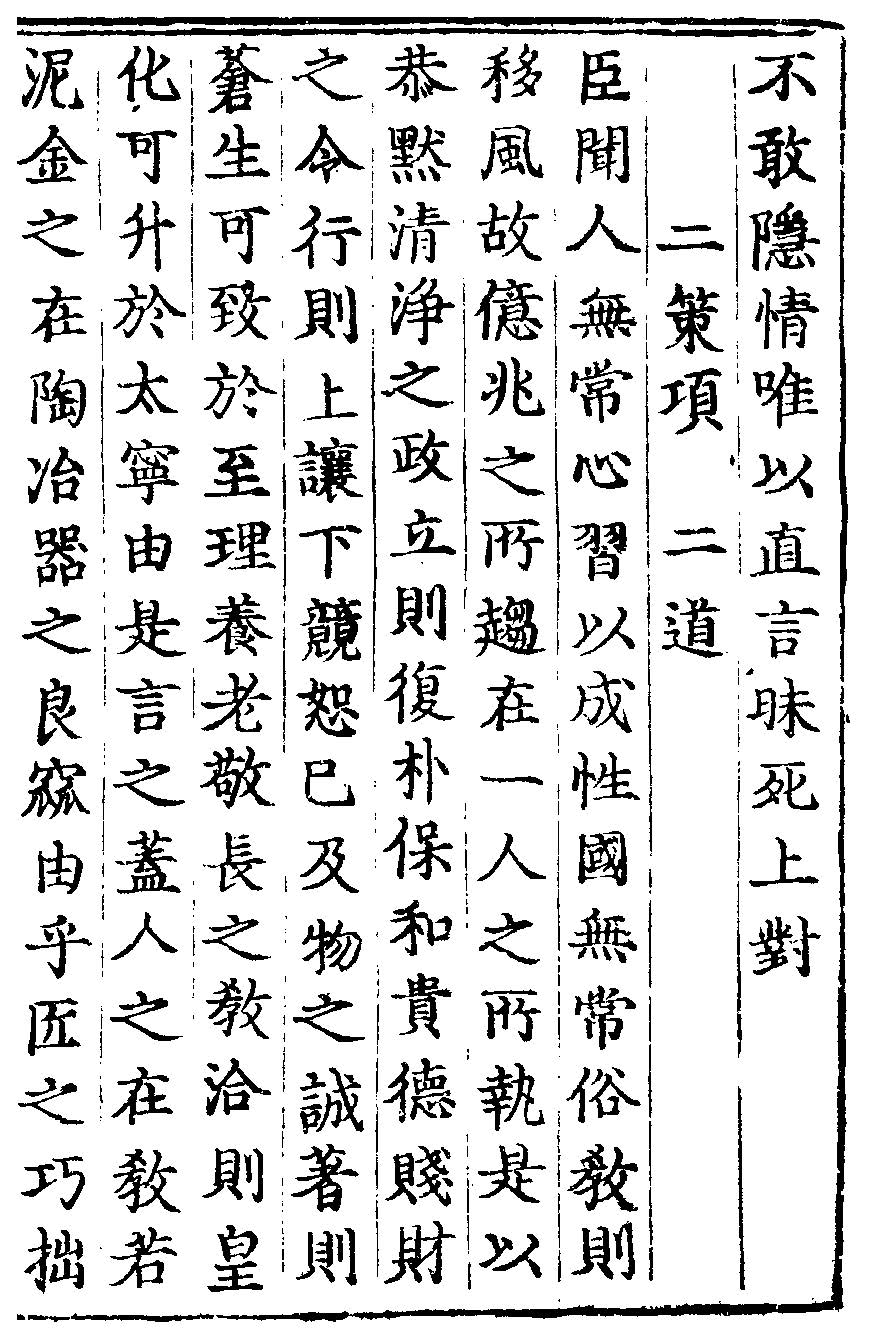 不敢隱情唯以直言昧死上對
二策項　二道
臣聞人無常心習以成性國無常俗敎則
移風故億兆之所趨在一人之所執是以
恭默清淨之政立則復朴保和貴德賤財
之令行則上讓下競恕已及物之誠著則
蒼生可致於至理養老敬長之敎洽則皇
化可升於太寧由是言之蓋人之在敎若
泥金之在陶冶器之良窳由乎匠之巧拙